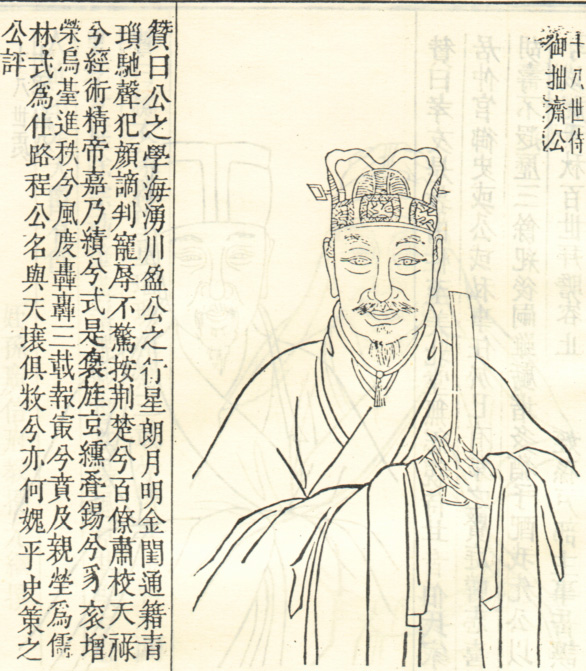 十八世侍
御拙齋公
贊曰公之學海湧川盈公之行星朗月明金閨通籍青
瑣馳聲犯顏謫判寵辱不驚按荆楚兮百僚肅校天祿
兮經術精帝嘉乃績兮式是褒旌京纁疊錫兮豸衮增
榮烏臺進秩兮風度轟轟三載報最兮賁及親塋爲儒
林式爲仕路程公名與天壤俱敝兮亦何媿乎史策之
公評